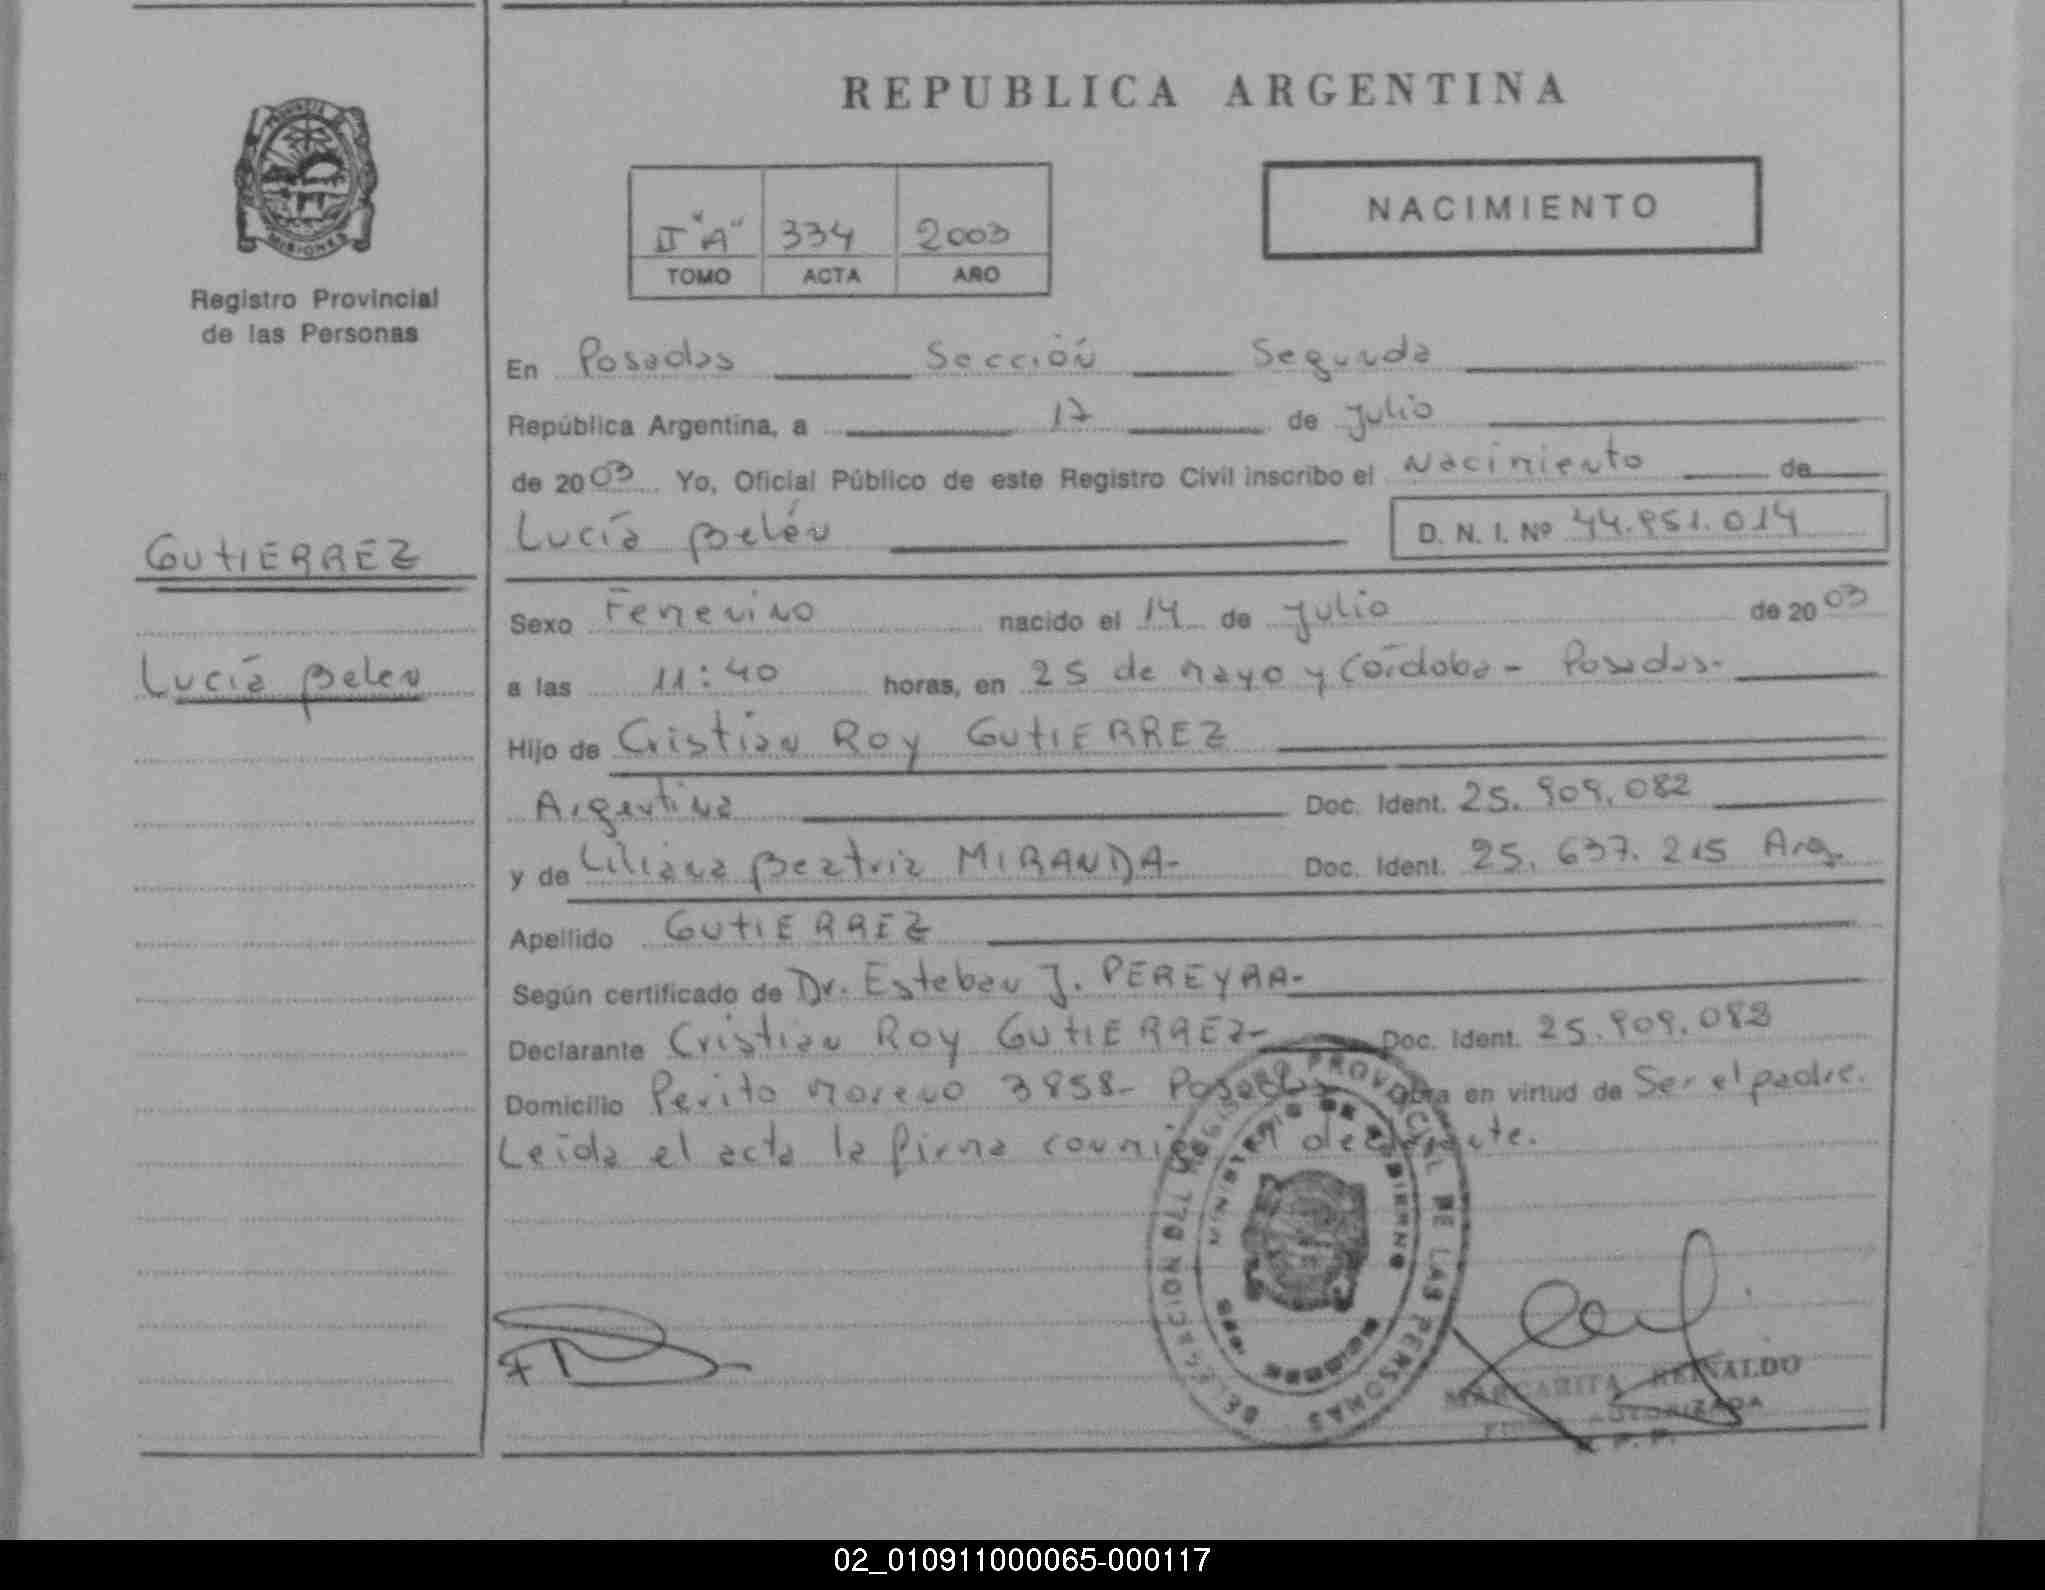 REPUBLICA ARGENTINA
PROVINCIA DE MISIONES
Registro Provincial
de las Personas
II "A" 334 2003
TOMO ACTA AÑO
NACIMIENTO
GUTIERREZ
Lucía Belen
En Posadas Sección Segunda
República Argentina, a 17 de Julio
de 2003 Yo, Oficial Público de este Registro Civil inscribo el Nacimiento de
Lucía Belén D. N. I. Nº 44.951.014
Sexo Femenino nacido el 14 de Julio de 2003
a las 11:40 horas, en 25 de Mayo y Córdoba - Posadas-
Hijo de Cristian Roy GUTIERREZ
Argentina Doc. Ident. 25.909.082
y de Liliana Beatriz MIRANDA- Doc. Ident. 25.637.215 Arg.
Apellido GUTIERREZ
Según certificado de Dr. Esteban J. PEREYRA-
Declarante Cristian Roy GUTIERREZ- Doc. Ident. 25.909.082
Domicilio Perito Moreno 3858- Posadas Obra en virtud de Ser el padre.
Leída el acta la firma conmigo el declarante.
REGISTRO PROVINCIAL DE LAS PERSONAS
MINISTERIO DE GOBIERNO
MISIONES
MARGARITA REINALDO
AUTORIZADA
R.P.P.
02_010911000065-000117